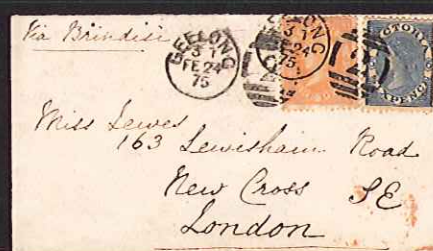 Via Brindisi
GEELONG
3 T
FE 24
75
GEELONG
3 T
FE 24
75
2
VICTORIA
Miss Lewes
163 Lewisham Road
New Cross SE
London